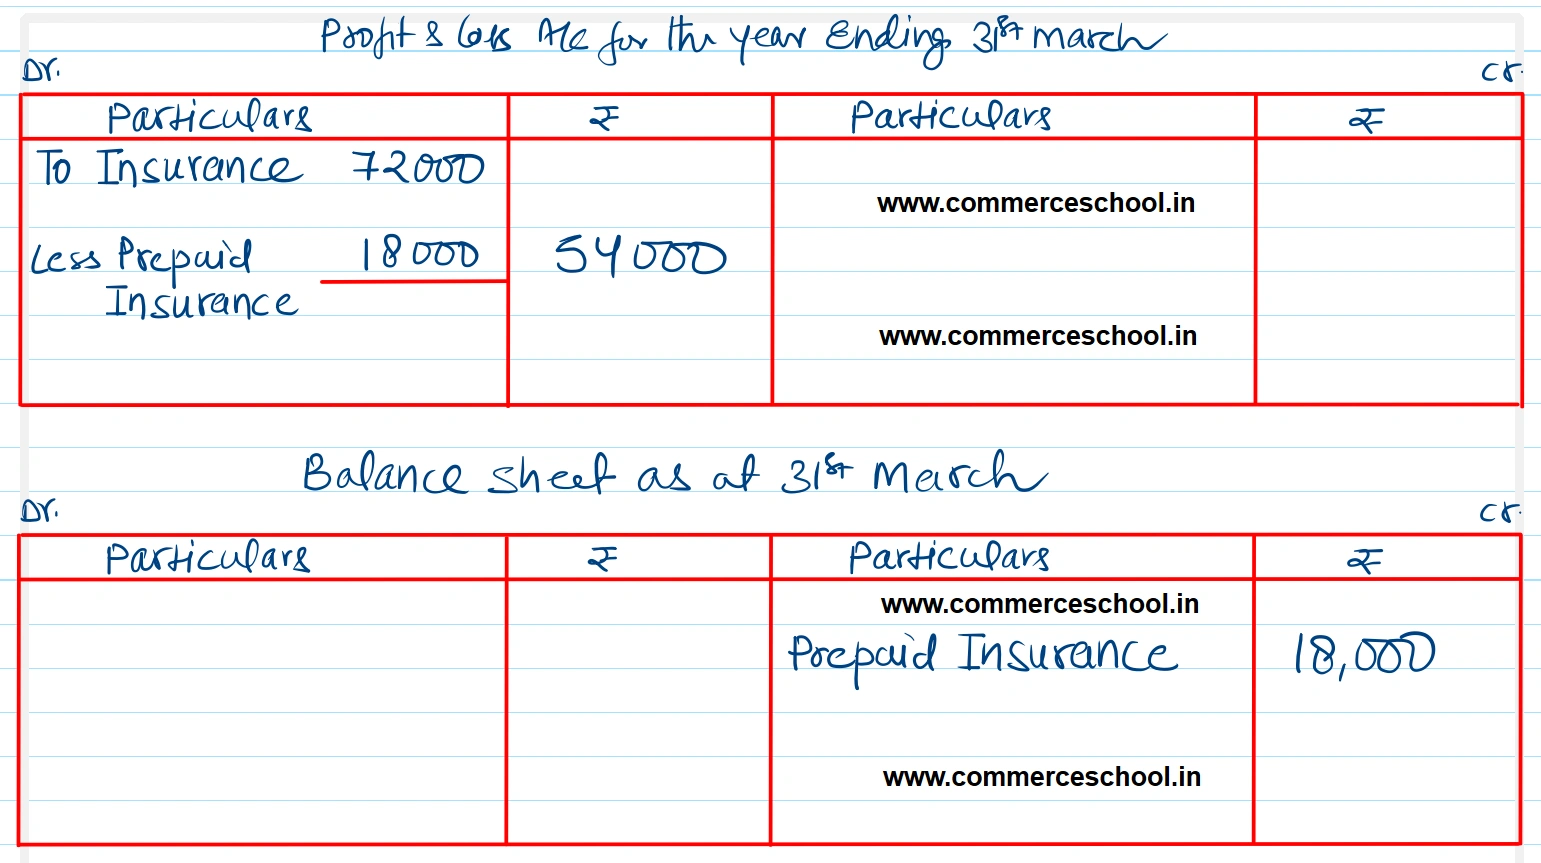 Profit & Loss A/c for the year Ending 31st march
Dr. Cr.
Particulars ₹ Particulars ₹
To Insurance 72000
www.commerceschool.in
Less Prepaid 18000 54000
Insurance
www.commerceschool.in
Balance Sheet as at 31st March
Dr. Cr.
Particulars ₹ Particulars ₹
www.commerceschool.in
Prepaid Insurance 18,000
www.commerceschool.in